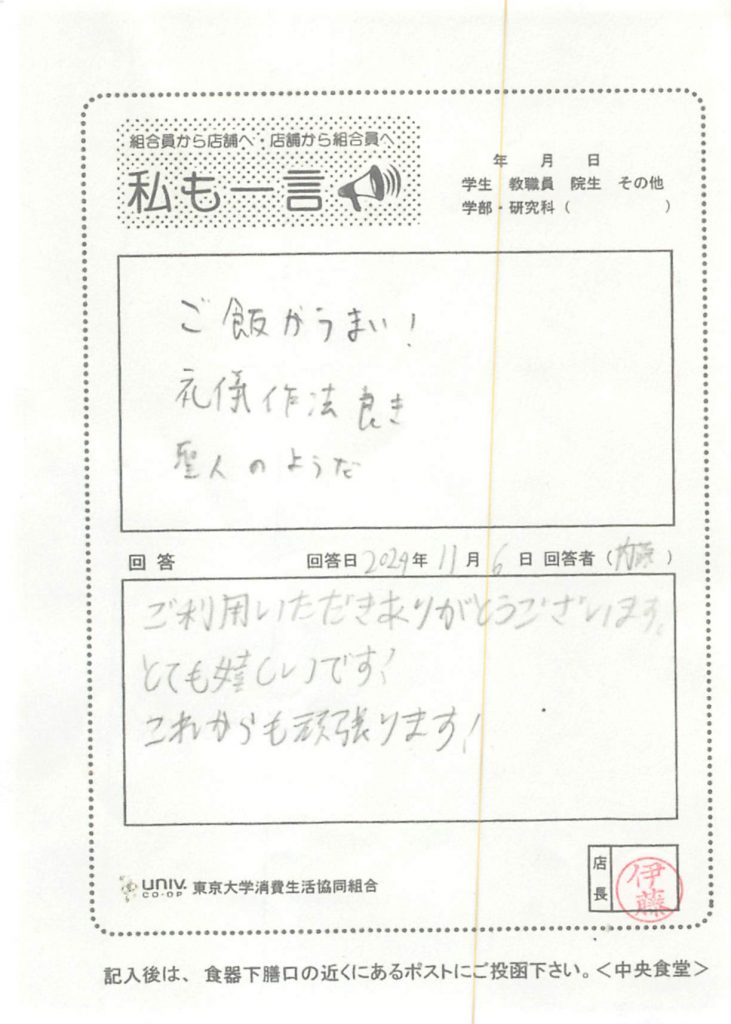 組合員から店舗へ・店舗から組合員へ
私も一言
年 月 日
学生 教職員 院生 その他
学部・研究科（ ）
ご飯がうまい！
礼儀作法良き
聖人のようだ
回答 回答日2024年11月6日 回答者（内藤）
ご利用いただきありがとうございます。
とても嬉しいです！
これからも頑張ります！
UNIV. CO-OP 東京大学消費生活協同組合
店長 伊藤
記入後は、食器下膳口の近くにあるポストにご投函下さい。＜中央食堂＞